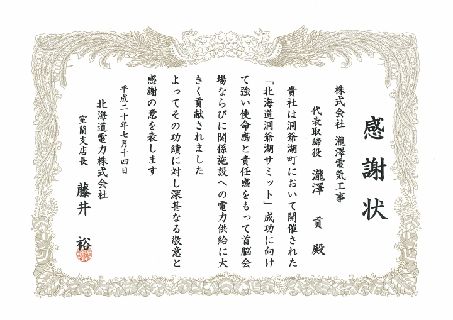 感謝状
株式会社 瀧澤電気工事
代表取締役 瀧澤 貢 殿
貴社は洞爺湖町において開催された
「北海道洞爺湖サミット」成功に向け
て強い使命感と責任感をもって首脳会
場ならびに関係施設への電力供給に大
きく貢献されました
よってその功績に対し深甚なる敬意と
感謝の意を表します
平成二十年七月十四日
北海道電力株式会社
室蘭支店長 藤井 裕